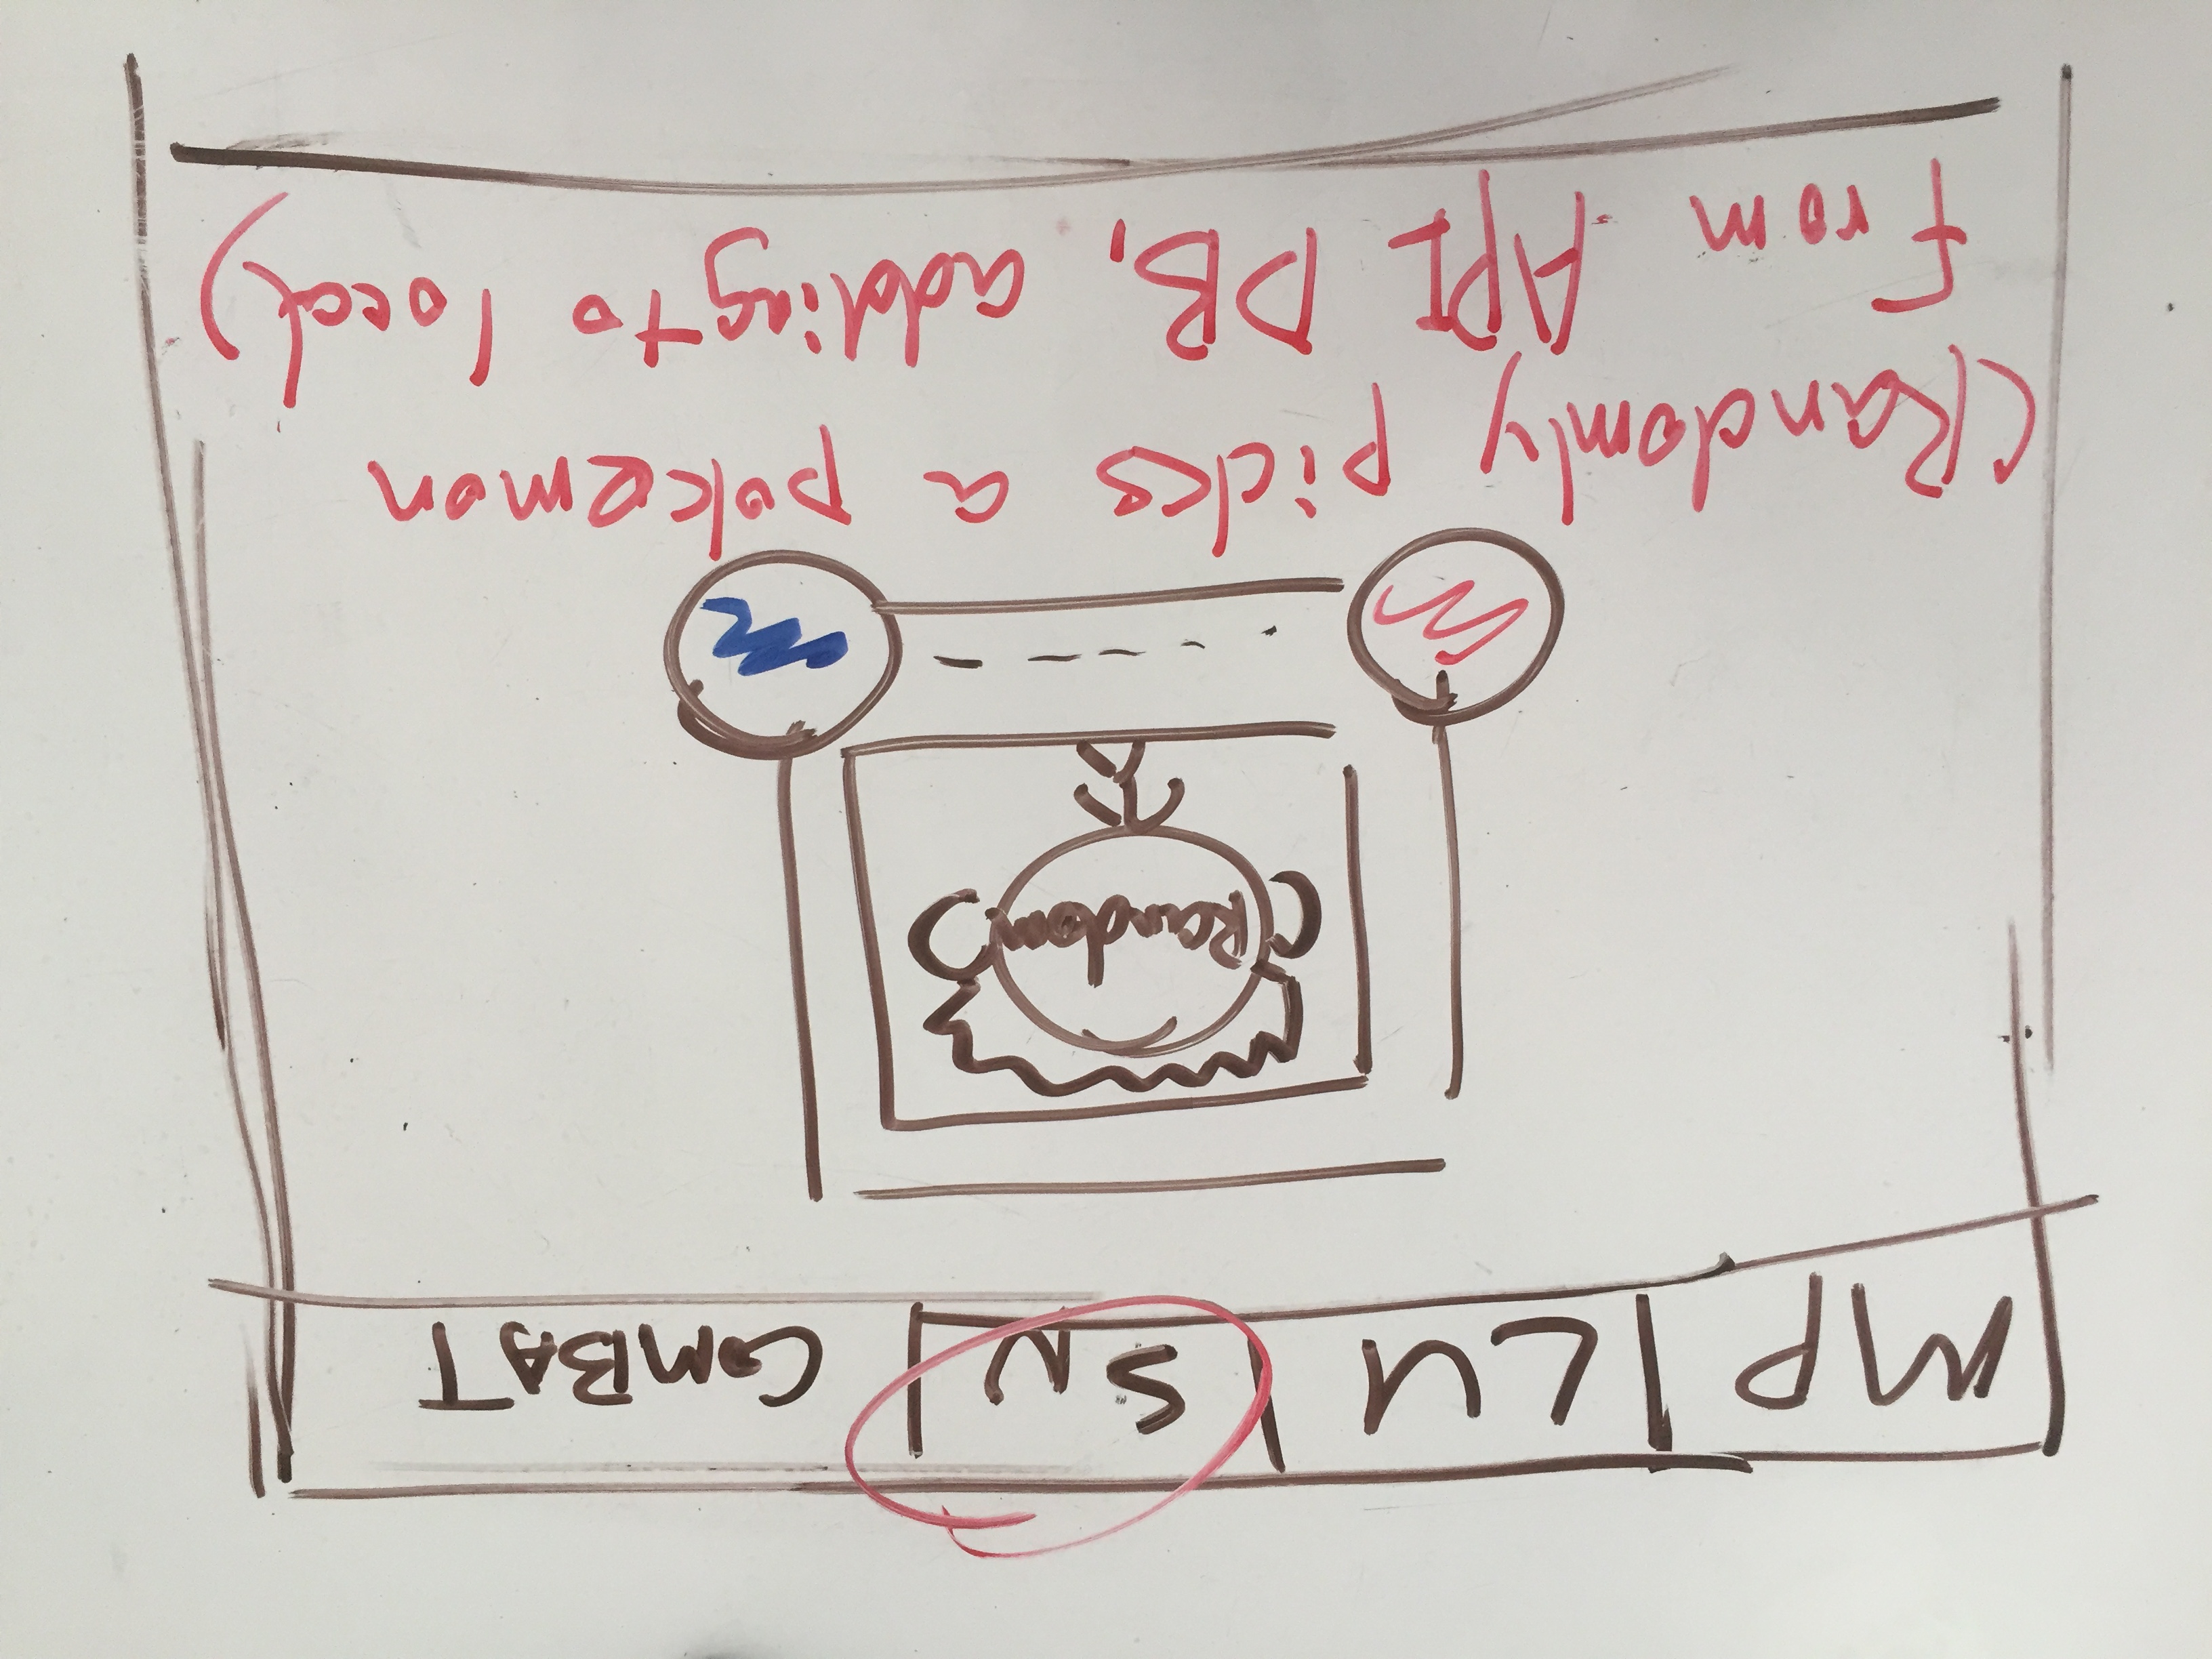 MP LU SN COMBAT
Random
(Randomly picks a pokemon
From API DB, adding to local)